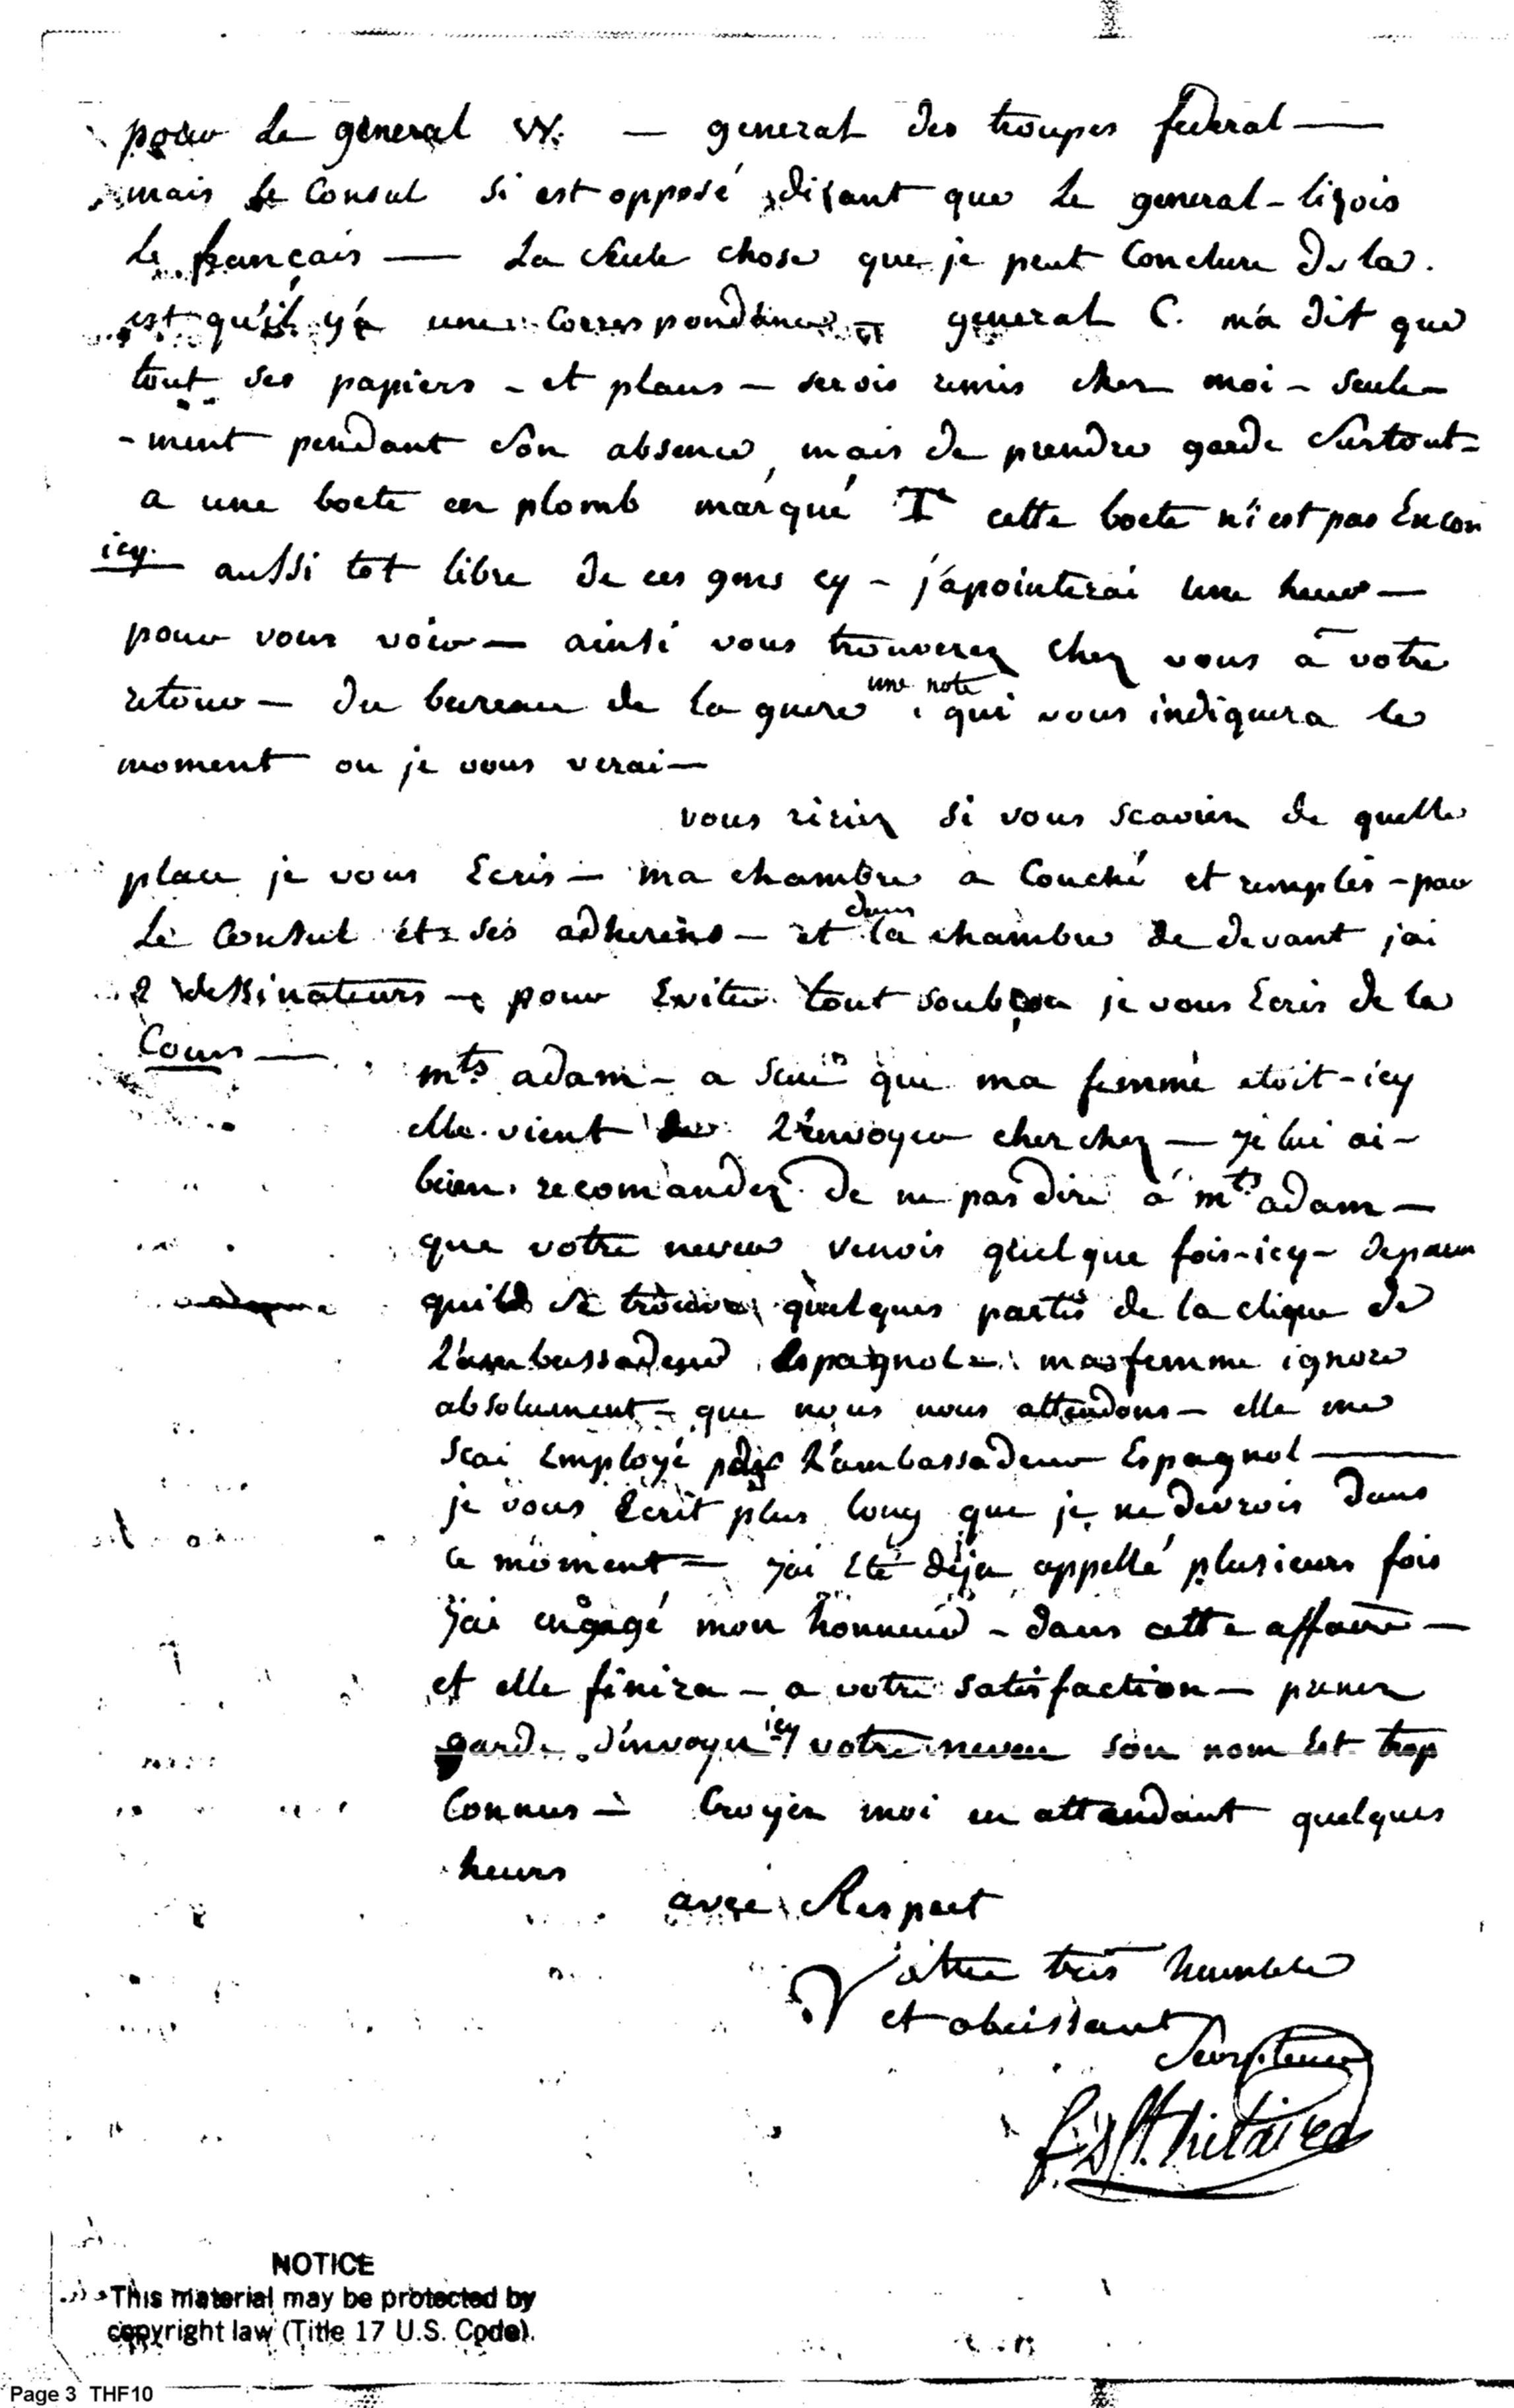 pour le general W. — general des troupes federal —
mais le Consul si est opposé, disant que le general - lisois
le français — La seule chose que je peut Conclure de la.
est qu'il y'a une Correspondance — general C. m'a dit que
tout ses papiers - et plans — serois remis chez moi - seule-
-ment pendant son absence, mais de prendre garde surtout-
a une boete en plomb marqué cette boete n'est pas Encor
icy. aussi tot libre de ces gens cy - j'apointerai une heure —
pour vous voir — ainsi vous trouverez chez vous a votre
retour — du bureau de la guere une note qui vous indiquera le
moment ou je vous verai —
vous ririez si vous scaviez de quelle
place je vous Ecris — ma chambre a Couché et remplis - par
Le Consul et ses adherens — et dans la chambre de devant j'ai
2 dessinateurs — pour Eviter tout soubçon je vous Ecris de la
Cour —
mts adam - a scu que ma femme etoit - icy
elle vient de l'envoyer cherchez — je lui ai -
bien recomandez de ne pas dire a mts adam —
que votre neveu venois quelque fois - icy - de peur
quil se trouve quelques partis de la clique de
l'ambassadeur Espagnol — ma femme ignore
absolument - que nous nous attendons — elle me
scai Employé par l'ambassadeur Espagnol —
je vous Ecrit plus long que je ne devrois dans
ce moment — j'ai Eté deja appellé plusieurs fois
j'ai engagé mon honneur - dans cette affaire —
et elle finira — a votre satisfaction — prenez
garde d'envoyer icy votre neveu son nom Est trop
Connus — Croyez moi en attendant quelques
heurs
avec Respect
Votre tres humble
et obeissant
Serviteur
f. D St. hilaire
NOTICE
This material may be protected by
copyright law (Title 17 U.S. Code).
Page 3 THF10